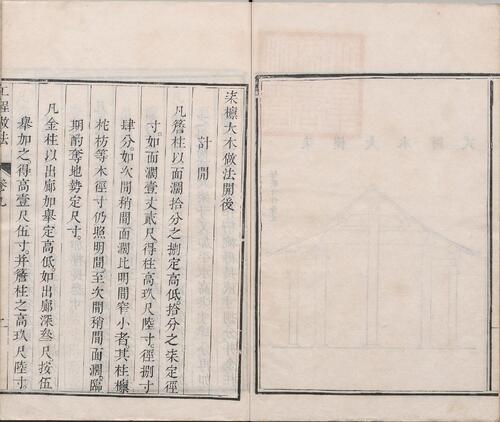 柒檩大木做法開後
計開
凡簷柱以面濶拾分之捌定高低拾分之柒定徑
寸如面濶壹丈貳尺得柱高玖尺陸寸徑捌寸
肆分如次間稍間面濶比明間窄小者其柱檩
柁枋等木徑寸仍照明間至次間稍間面濶臨
期酌奪地勢定尺寸
凡金柱以出廊加舉定高低如出廊深叁尺按伍
舉加之得高壹尺伍寸并簷柱之高玖尺陸寸
工程做法
卷九